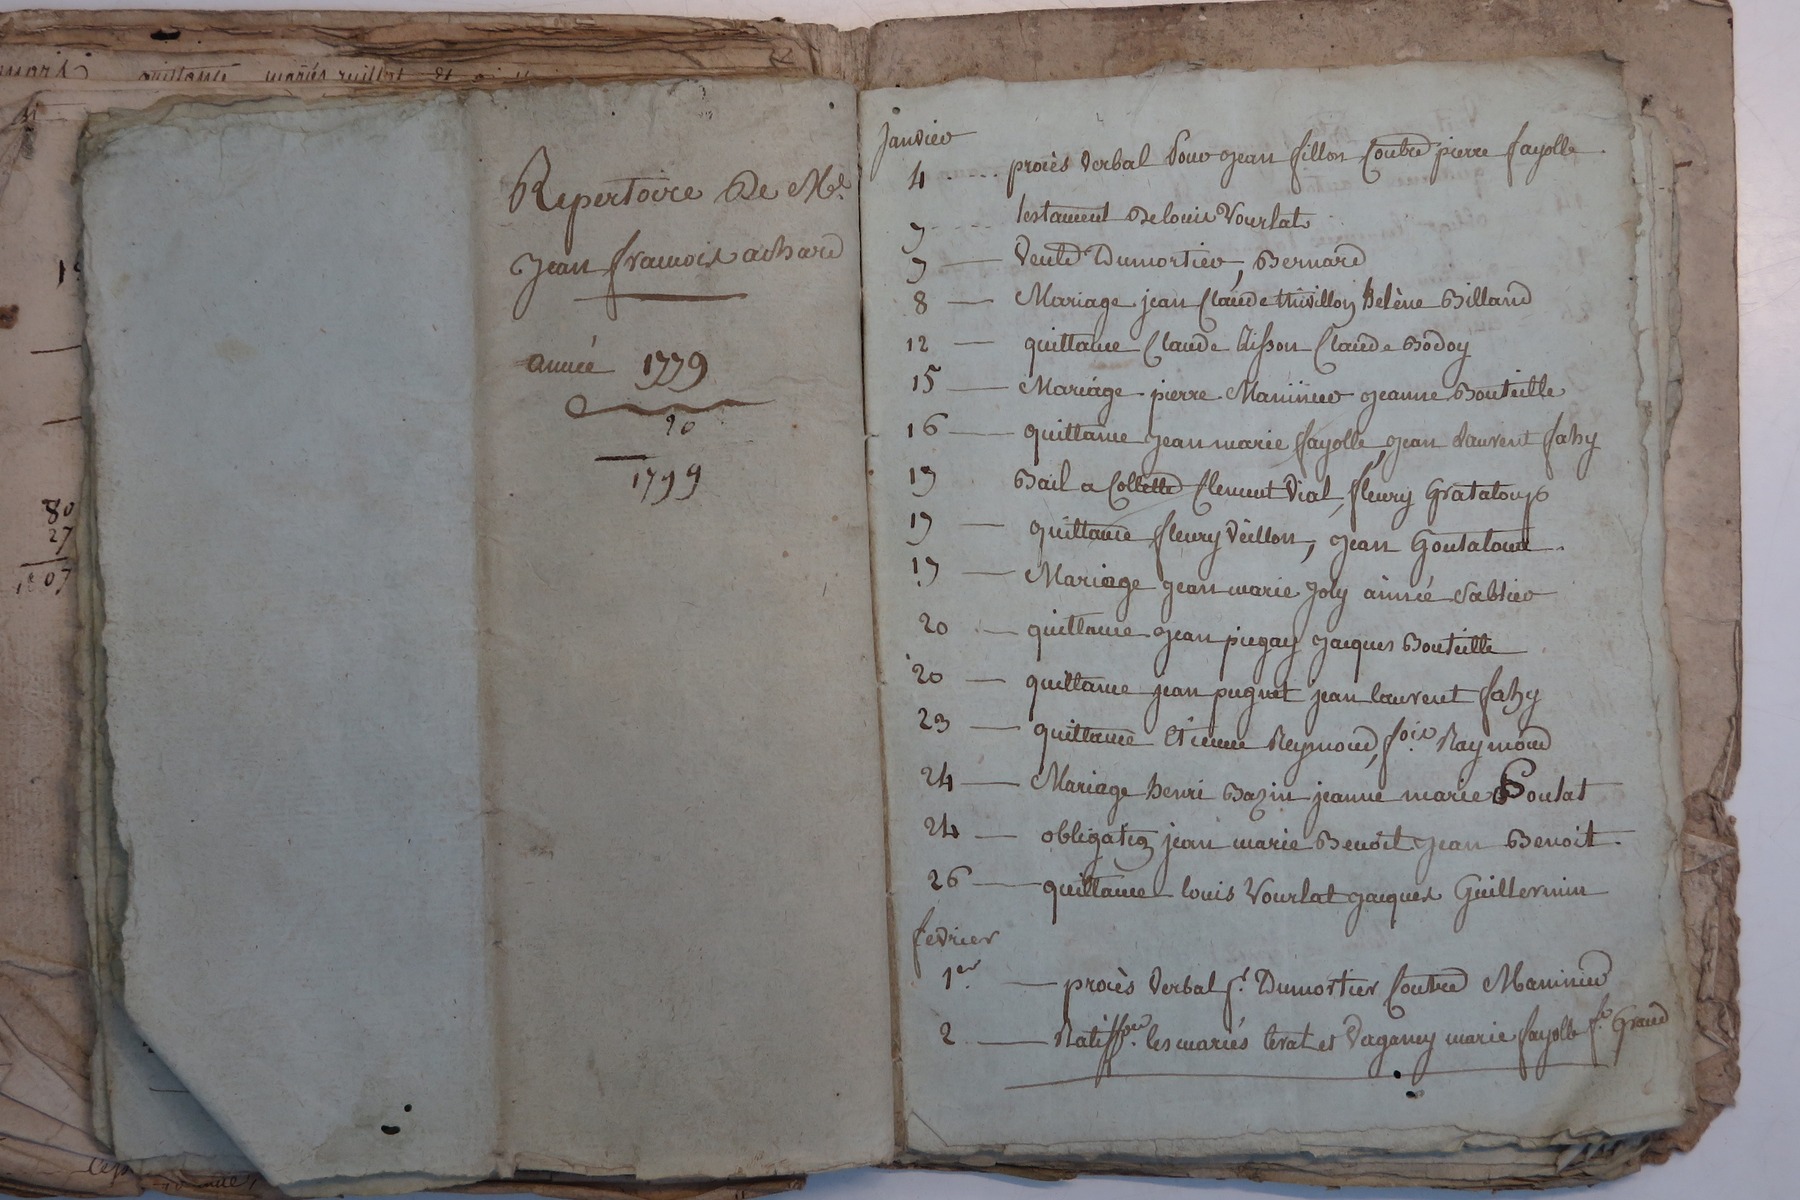 quittance mariés
80
27
107
Repertoire De Me.
Jean francois achard
année 1779
20
1799
Janvier
4 procès verbal pour jean fillon Contre pierre fayolle
7 testament De louis Vourlat
7 Vente Dumortier, Bernard
8 Mariage jean Claude thivillon helène Billand
12 quittance Claude Claude Bodoy
15 Mariage pierre Maninier jeanne Bouteille
16 quittance jean marie fayolle, jean laurent fahy
17 Bail a Collette Clement Vial, fleury Grataloup
17 quittance fleury Veillon, jean Goutaland
17 Mariage jean marie joly aimée Sablier
20 quittance jean piegay jacques Bouteille
20 quittance jean puguet jean laurent fahy
23 quittance Etienne Reymond, fois Raymond
24 Mariage henri Bazin jeanne marie Poulat
24 obligation jean marie Benoit jean Benoit
26 quittance louis Vourlat jacques Guillermin
fevrier
1er procès verbal sr. Dumortier Contre Maninier
2 Ratiffon. les mariés terat et Daganey marie fayolle fe. Grand